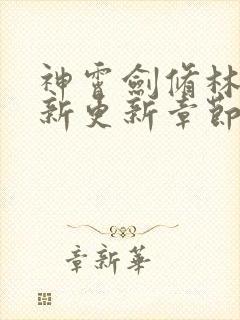 神霄劍脩林
新更新章節
章新華